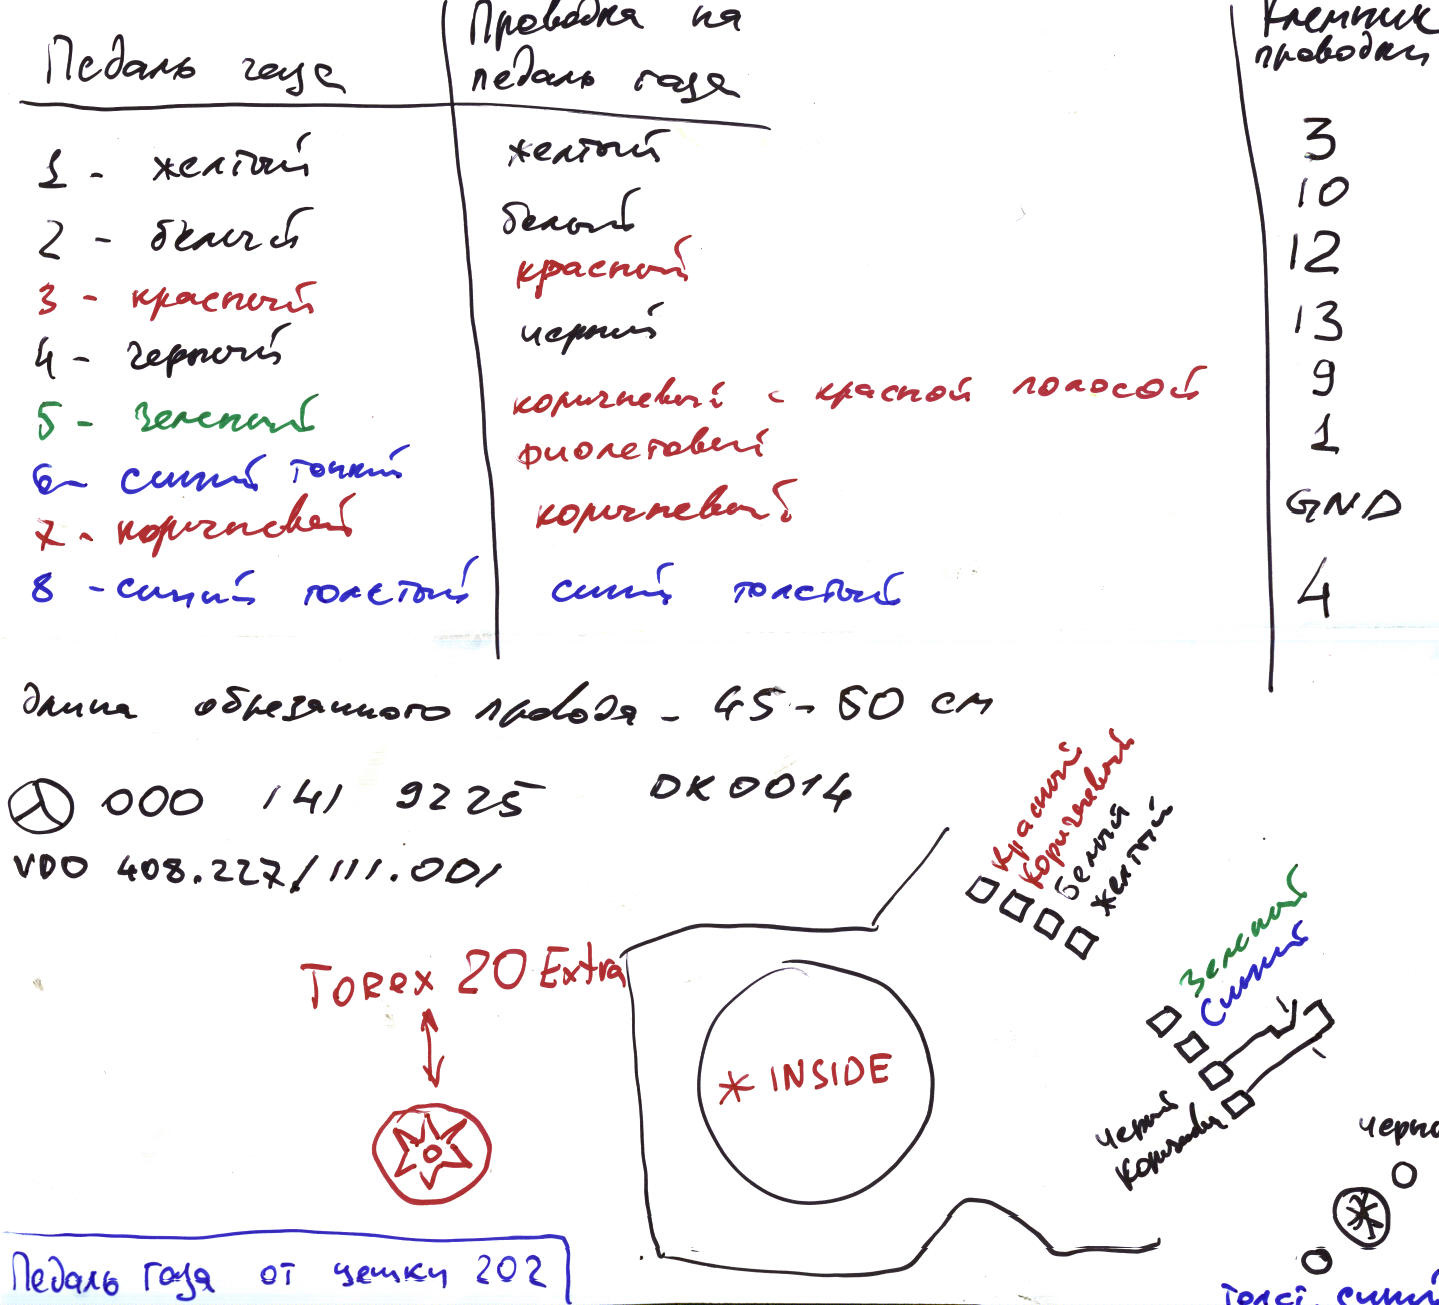 Педаль газа
Проводка на
педаль газа
Клемник
проводки
1 - желтый желтый 3
2 - белый белый 10
3 - красный красный 12
4 - черный черный 13
5 - зеленый коричневый с красной полосой 9
6 - синий тонкий фиолетовый 1
7 - коричневый коричневый GND
8 - синий толстый синий толстый 4
длина обрезанного провода - 45-50 см
000 141 9225 DK0014
VDO 408.227/111.001
красный
коричневый
белый
желтый
Torex 20 Extra
* INSIDE
зеленый
синий
черный
коричневы
черно
толст. синий
Педаль газа от цешки 202